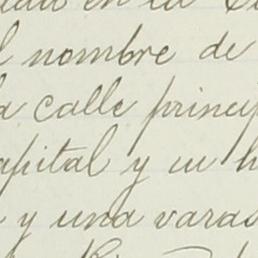 en la
nombre de
calle princip
apital y un h
y una varas